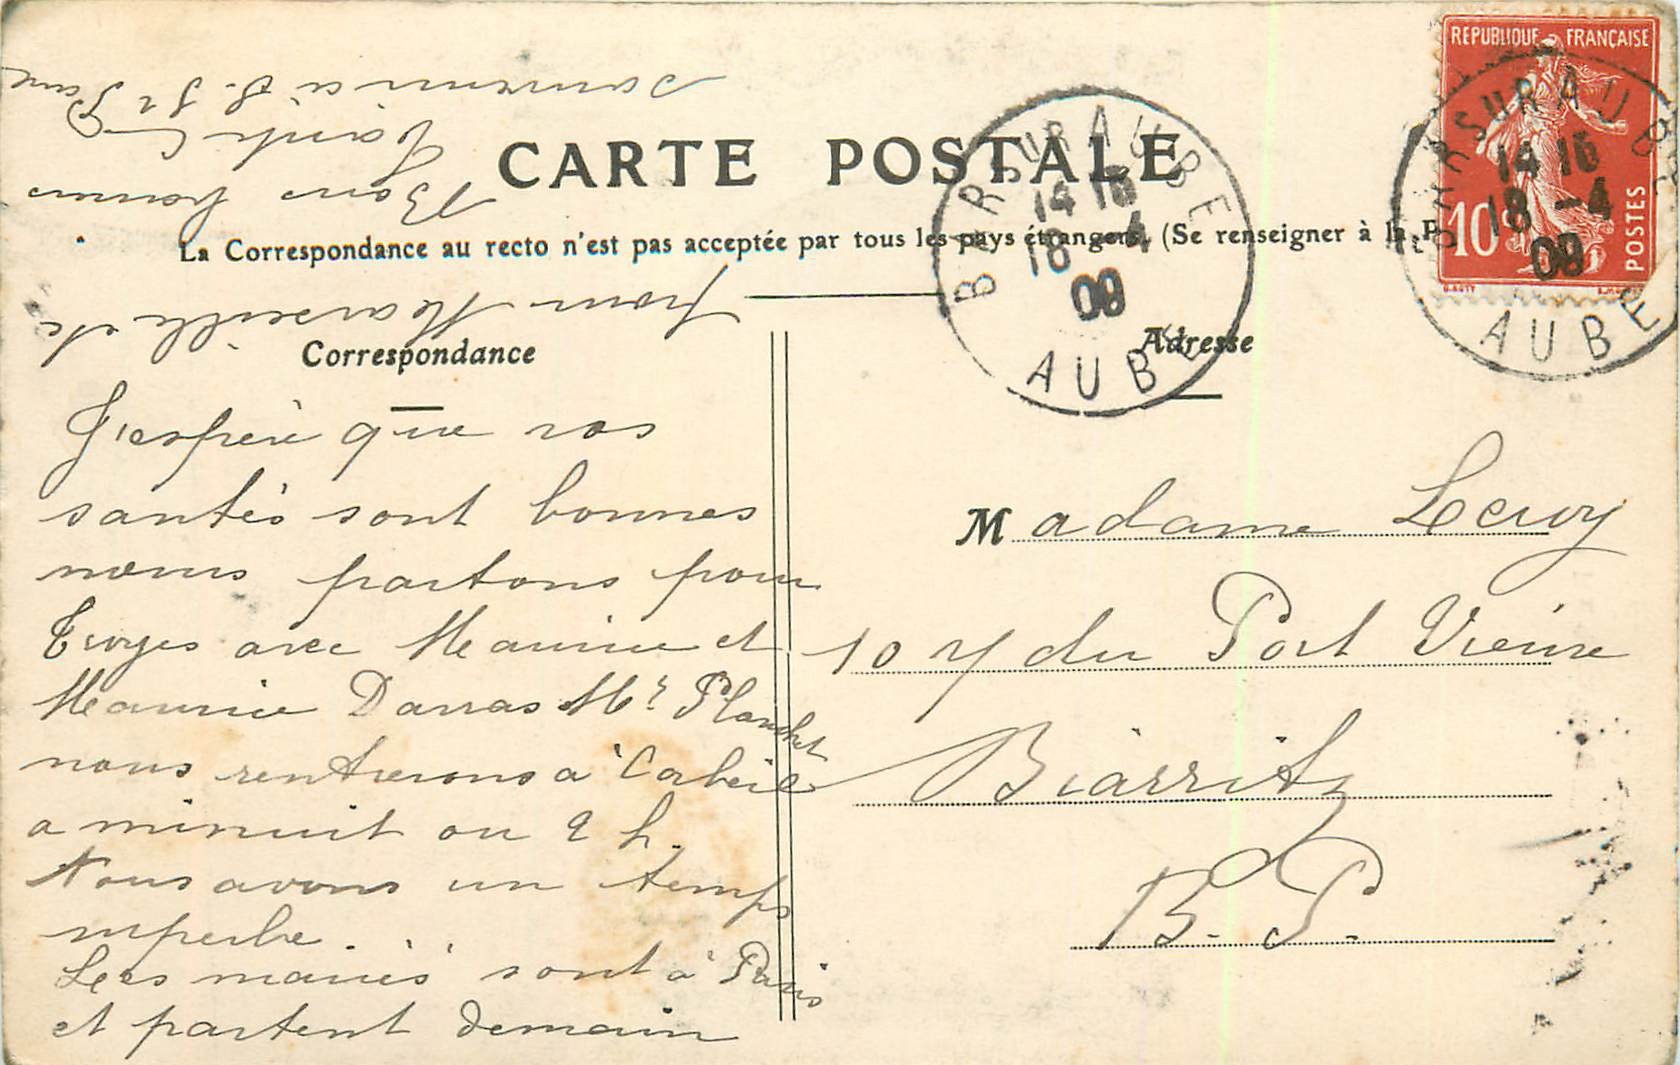 CARTE POSTALE
La Correspondance au recto n'est pas acceptée par tous les pays étrangers. (Se renseigner à la P
Correspondance
Adresse
J'espère que vos
santés sont bonnes
nous partons pour
Troyes avec Maurice et
Maurice Darras Mr Planchet
nous rentrerons à Corbeil
a minuit ou 2 h.
Nous avons un temps
superbe.
Les mariés sont à Paris
et partent demain
pour Marseille etc
Bons baisers
souvenir à
Madame Leroy
10 r du Port Vieux
Biarritz
B. P.
REPUBLIQUE FRANÇAISE
10c
POSTES
BAR SUR AUBE
14 15
18 -4
09
AUBE
BAR SUR AUBE
14 15
18 -4
09
AUBE